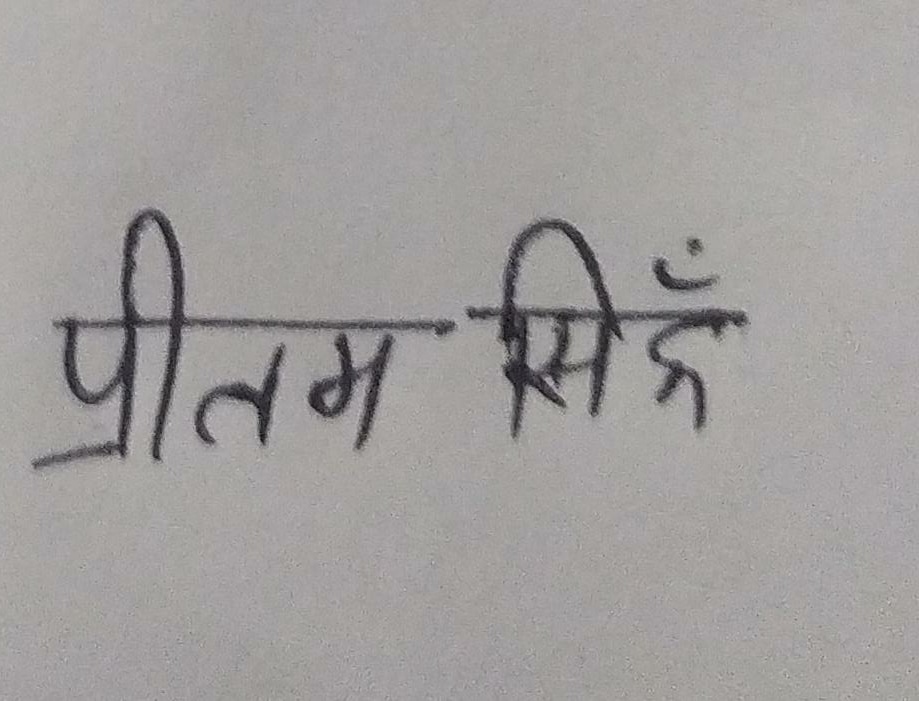 प्रीतम सिहँ